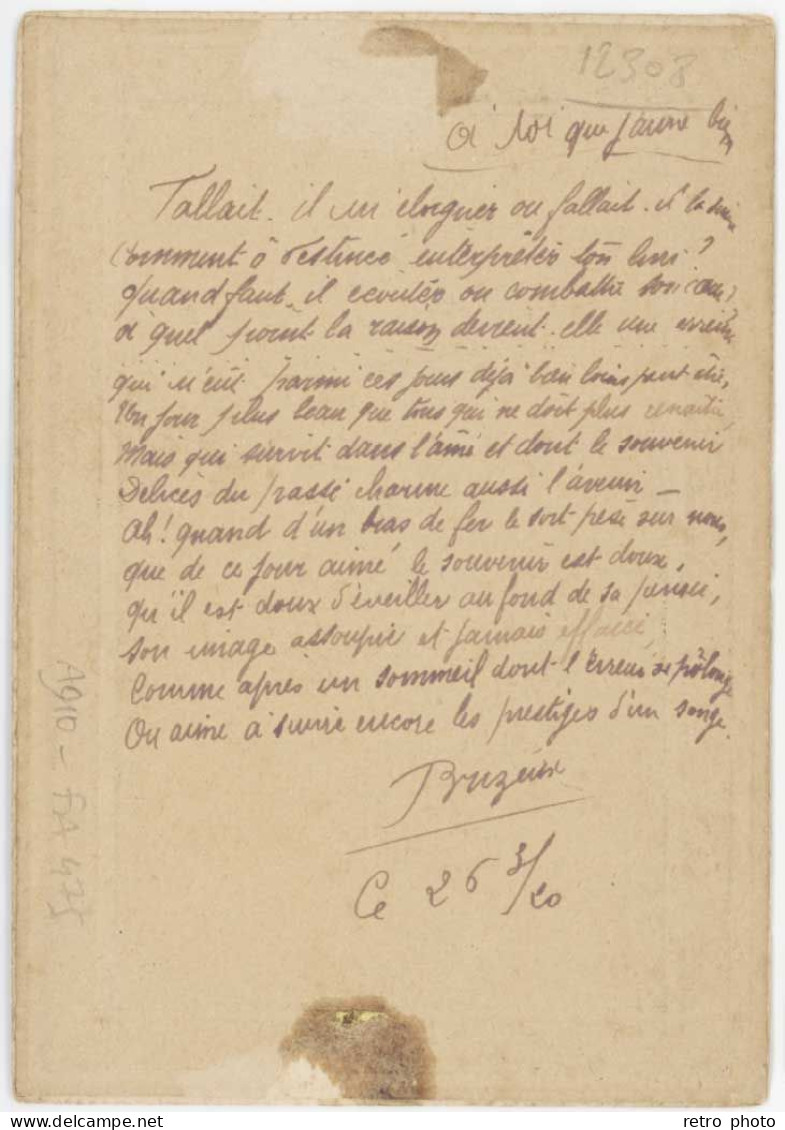 12308
à toi que j'aime bien
Fallait-il m'éloigner ou fallait-il la suivre
Comment ô destinée interpréter ton livre ?
Quand faut-il écouter ou combattre son cœur ?
à quel point la raison devient-elle une erreur
qui n'eut parmi ces jours déjà bien loin peut-être,
Un jour plus beau que tous qui ne doit plus renaître,
Mais qui survit dans l'âme et dont le souvenir
Délices du passé charme aussi l'avenir —
Ah ! quand d'un bras de fer le sort pèse sur nous,
que de ce jour aimé le souvenir est doux,
qu'il est doux d'éveiller au fond de sa pensée,
son image assoupie et jamais effacée,
Comme après un sommeil dont l'erreur se prolonge
On aime à suivre encore les prestiges d'un songe.
Ce 26 3/20
A910 - FA 475
retro photo